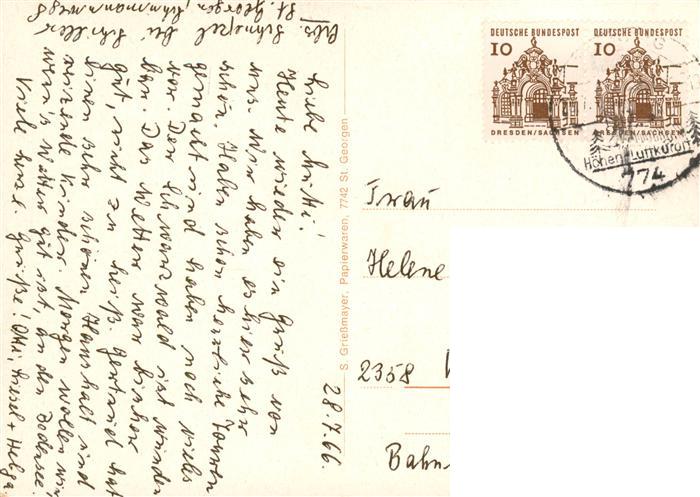 Abs. Schnepel bei Schiller
St. Georgen, Schumannweg 8
28.7.66
Liebe Mutti!
Heute wieder ein Gruß von
uns. Wir haben es hier sehr
schön. Haben schon herrliche Touren
gemacht und haben noch vieles
vor. Der Schwarzwald ist wunder
bar. Das Wetter war bisher
gut, nicht zu heiß. Gertrud hat
einen sehr schönen Haushalt und
reizende Kinder. Morgen wollen wir,
wenn's Wetter gut ist, an den Bodensee.
Viele herzl. Grüße! Otti, Liesel + Helga
S. Grießmayer, Papierwaren, 7742 St. Georgen
DEUTSCHE BUNDESPOST
10
DRESDEN/SACHSEN
DEUTSCHE BUNDESPOST
10
DRESDEN/SACHSEN
Höhen-Luftkurort
774
Frau
Helene
2358
Bahn